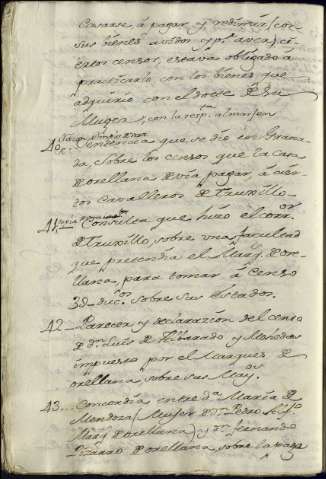 Casarse á pagar, y redimir, con
sus bienes unidos
estos censos, estava obligado á
practicarlo con los bienes que
adquirio con el dote de su
Muger, con la
40 Sentencia que se dio en Grana-
da, sobre los censos que la casa
de orellana devia pagar, á cier-
tos cavalleros de truxillo
41 Consulta que hizo el corr.or
de truxillo, sobre una facultad
que pretendia el Marq. de ore-
llana, para tomar á censo
duc.os sobre sus Estados.
42 Parecer, y declarazion del censo
de d.n Luis de y Mendoza
impuesto por el Marques de
orellana, sobre sus May.
43 Concordia entre d.a Maria de
Mendoza (Muger de d.n Pedro
Marq. de orellana) y d.n fernando
Pizarro de orellana, sobre la paga